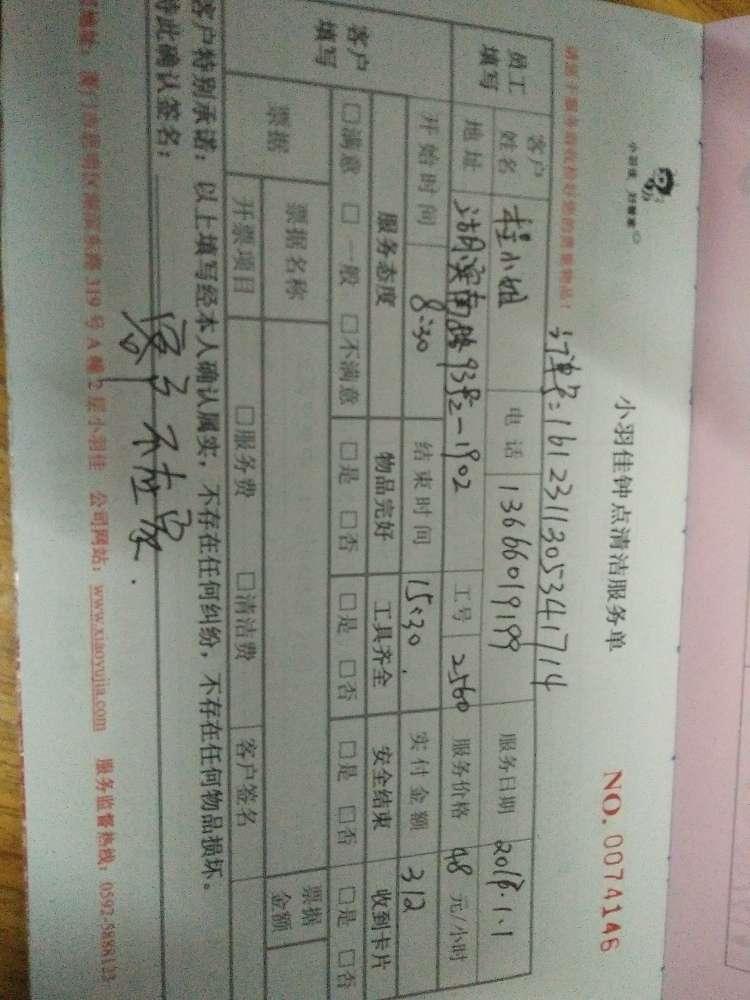 小羽佳 好管家
小羽佳钟点清洁服务单
NO. 0074146
请您于服务前收检好您的贵重物品!
订单号: 1612311305341714
员工填写 客户姓名 程小姐 电话 13666019199 服务日期 2018.1.1
地址 湖滨南路93号2-1902 工号 2560 服务价格 48 元/小时
开始时间 8:30 结束时间 15:30. 实付金额 312
客户填写 服务态度 物品完好 工具齐全 安全结束 收到卡片
□满意 □一般 □不满意 □是 □否 □是 □否 □是 □否 □是 □否
票据 票据名称 票据金额
开票项目 □服务费 □清洁费 客户签名
客户特别承诺: 以上填写经本人确认属实, 不存在任何纠纷, 不存在任何物品损坏。
特此确认签名: 客户不在家.
地址: 厦门市思明区湖滨东路 319 号 A 幢 2 层小羽佳 公司网站: www.xiaoyujia.com 服务监督热线: 0592-5888123